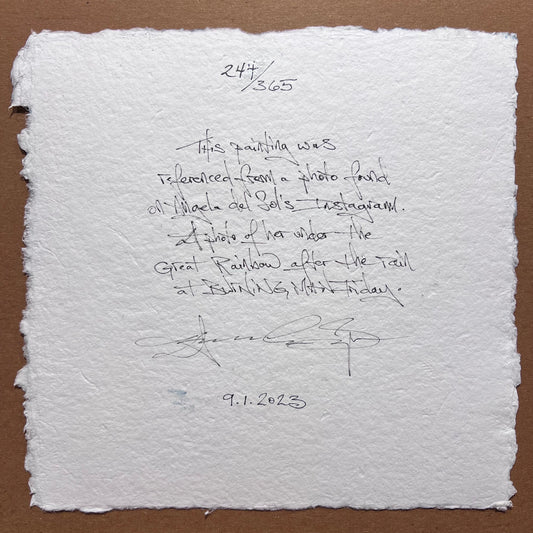 244/365
This painting was
referenced from a photo found
on Magla del Sol's Instagram.
A photo of her under the
Great Rainbow after the rain
at BURNING MAN Friday.
9.1.2023